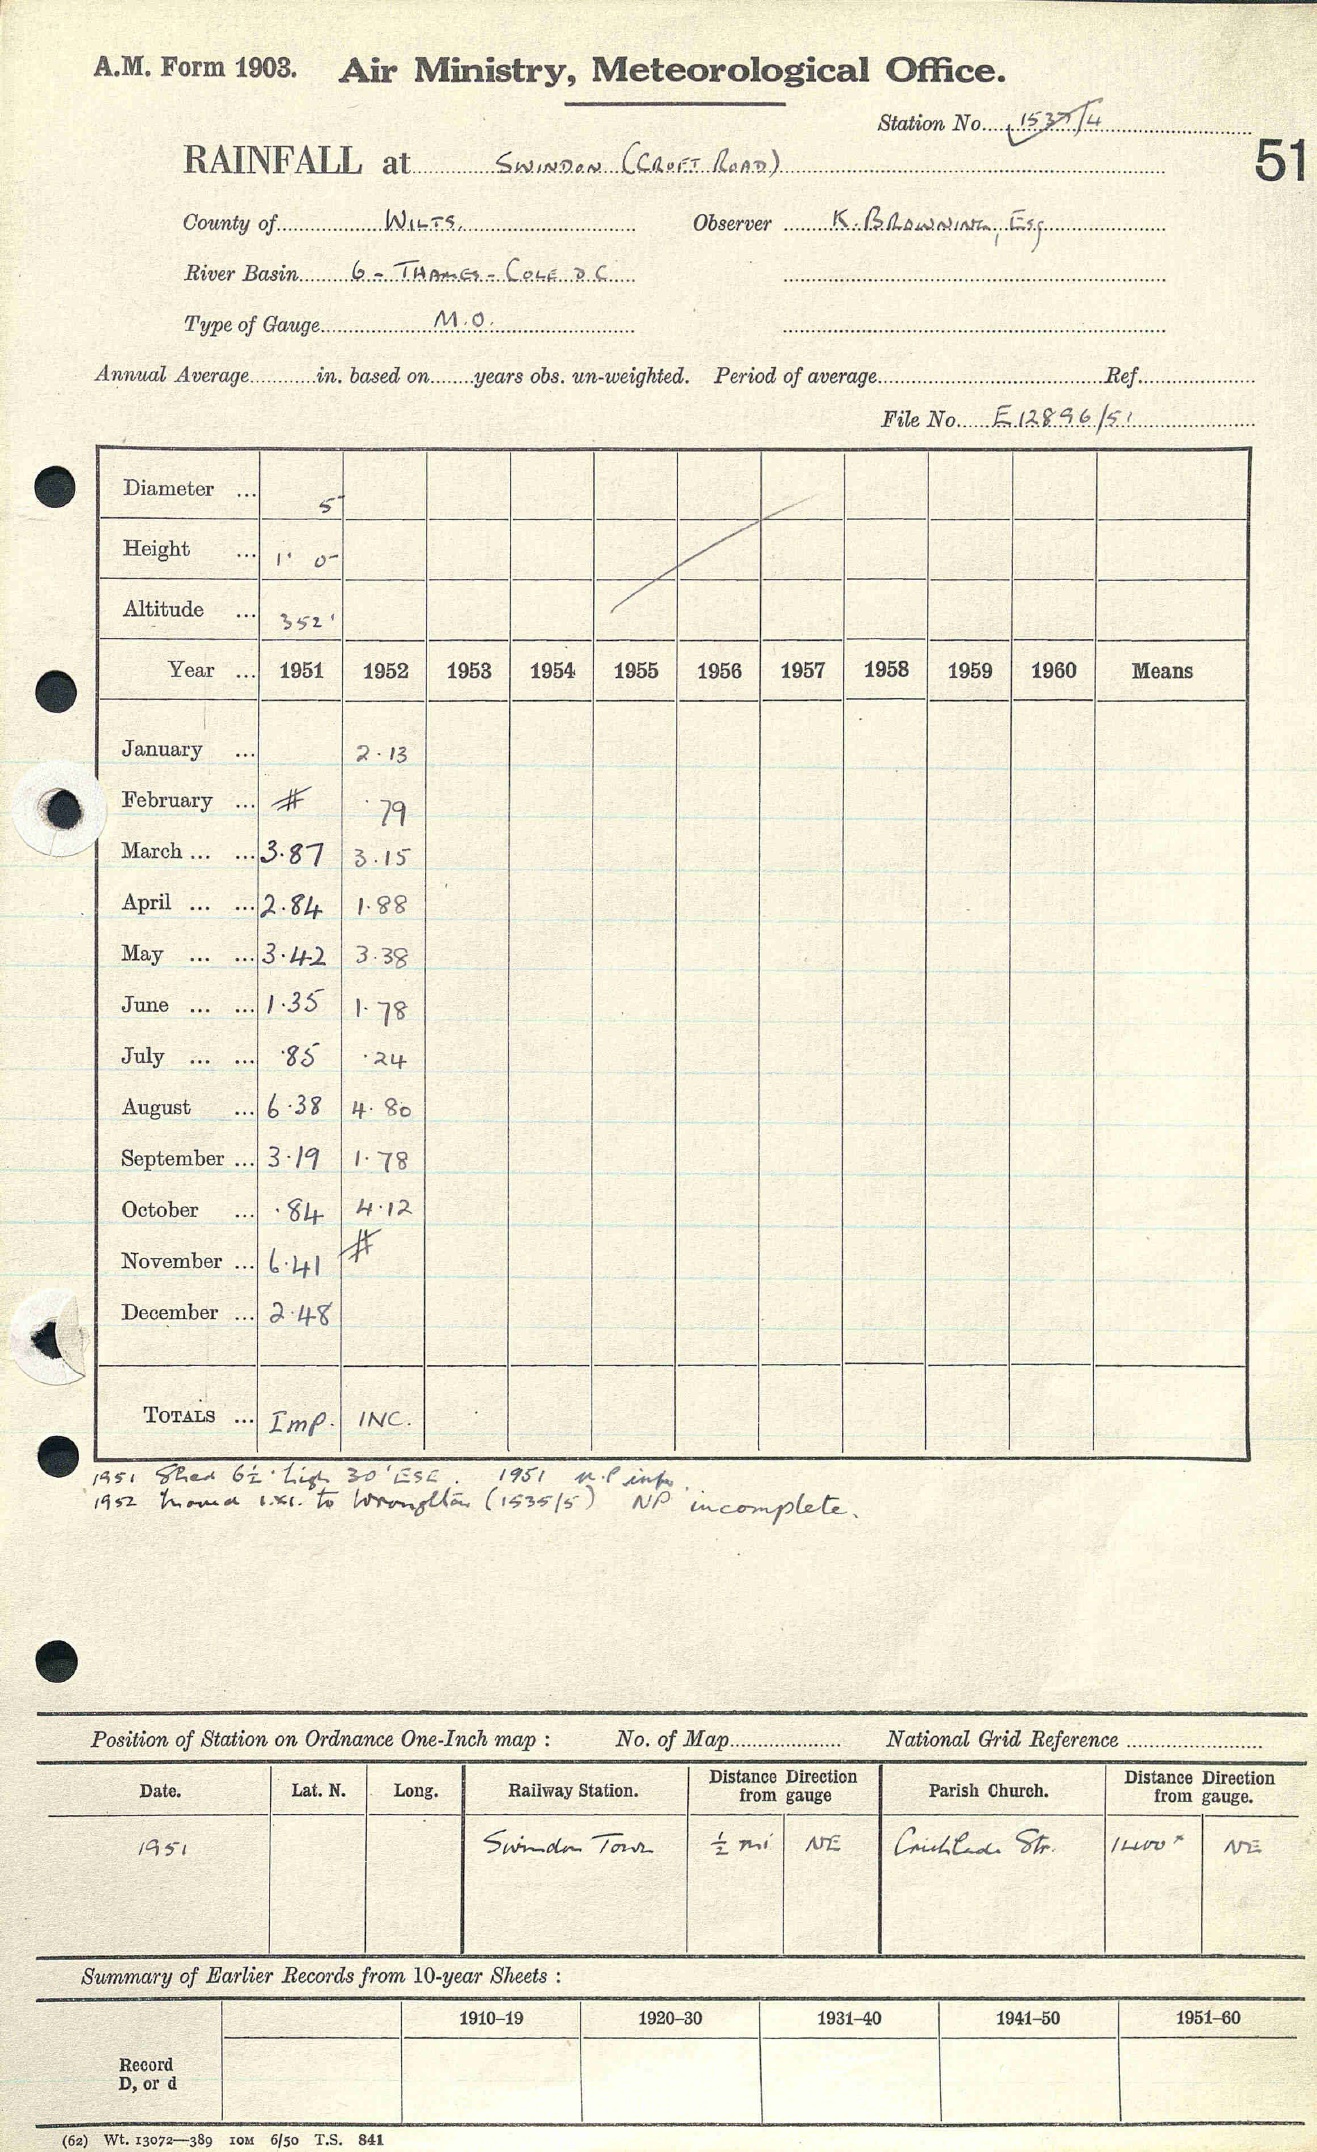 A.M. Form 1903. Air Ministry, Meteorological Office.
Station No. 1535/4
51
RAINFALL at SWINDON (CROFT ROAD)
County of WILTS. Observer K. BROWNING, Esq
River Basin 6 - THAMES - COLE D C
Type of Gauge M.O.
Annual Average in. based on years obs. un-weighted. Period of average Ref.
File No. E 12896/51
Diameter ... 5
Height ... 1' 0
Altitude ... 352'
Year ... 1951 1952 1953 1954 1955 1956 1957 1958 1959 1960 Means
January ... 2.13
February ... # .79
March ... ... 3.87 3.15
April ... ... 2.84 1.88
May ... ... 3.42 3.38
June ... ... 1.35 1.78
July ... ... .85 .24
August ... 6.38 4.80
September ... 3.19 1.78
October ... .84 4.12
November ... 6.41 #
December ... 2.48
TOTALS ... Imp. INC.
1951 Shed 6½' high 30' ESE. 1951 n.p
1952 moved 1.XI. to Wroughton (1535/5) NP incomplete.
Position of Station on Ordnance One-Inch map : No. of Map National Grid Reference
Date. Lat. N. Long. Railway Station. Distance Direction from gauge Parish Church. Distance Direction from gauge.
1951 Swindon Town ½ mi NE Cricklade Str. 1400 NE
Summary of Earlier Records from 10-year Sheets :
1910–19 1920–30 1931–40 1941–50 1951–60
Record
D, or d
(62) Wt. 13072—389 10M 6/50 T.S. 841